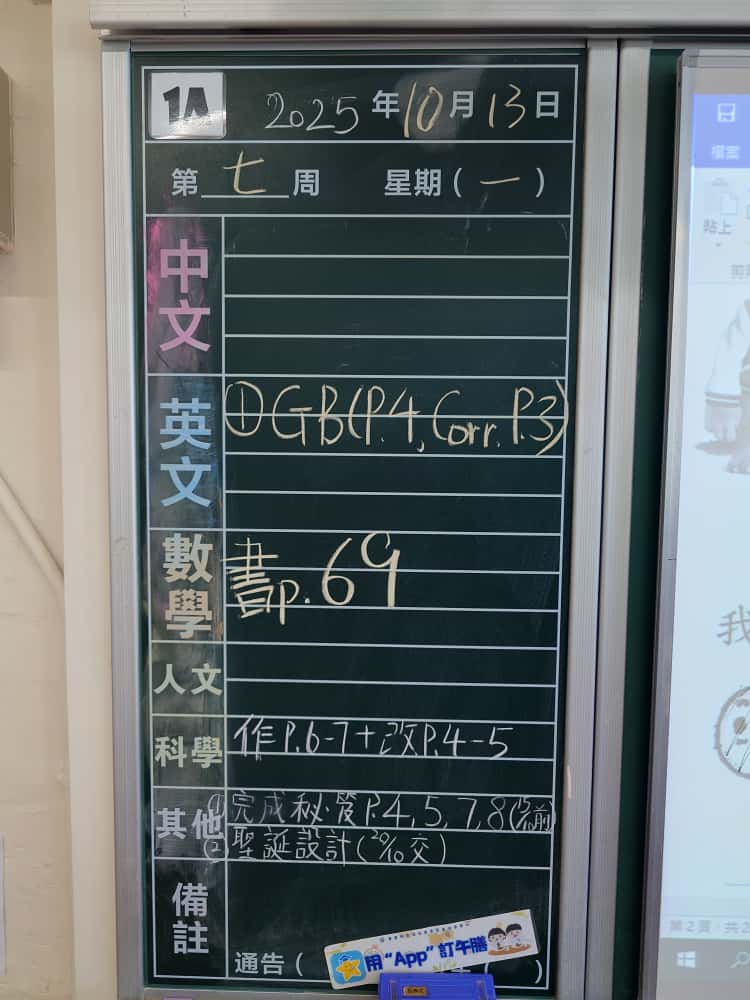 1A 2025年10月13日
第七周 星期(一)
中文
英文 ①GB(P.4, Corr. P.3)
數學 書p.69
人文
科學 作P.6-7+改P.4-5
其他 (1)完成秘.管P.4,5,7,8
(2)聖誕設計(20/10交)
備註
通告(
用“App”訂午膳
)
檔案
貼上
我
第2頁，共2